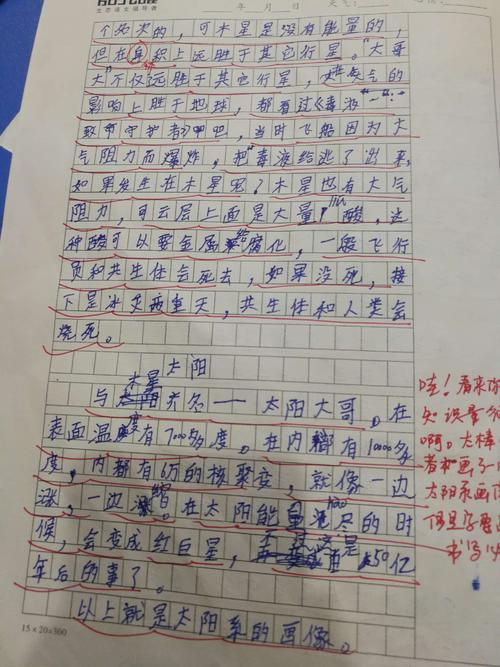 年 月 日
个名次的，可木星是没有能量的，
但在身积上远胜于其它行星。"大哥
大"不仅远胜于其它行星，对天气的
影响上胜于地球，都看过《毒液：
致命守护者》吧，当时飞船因为大
气阻力而爆炸，把"毒液给逃了出来，
如果发生在木星呢？木星也有大气
阻力，可云层上面是大量酸，这
种酸可以要金属给腐化，一般飞行
员和共生体会死去，如果没死，接
下是冰火两重天，共生体和人类会
烧死。
太阳
与木星齐名——太阳大哥。在
表面温度有7000多度。在内都有10000多
度，内都有6万的核聚变，就像一边
涨，一边。在太阳能量耗尽的时
候，会变成红白星，不过这是50亿
年后的事了。
以上就是太阳系的画像。
哇！看来你
知识量
啊。太棒
着把画了一
太阳系画
但是字要
书写
15×20=300